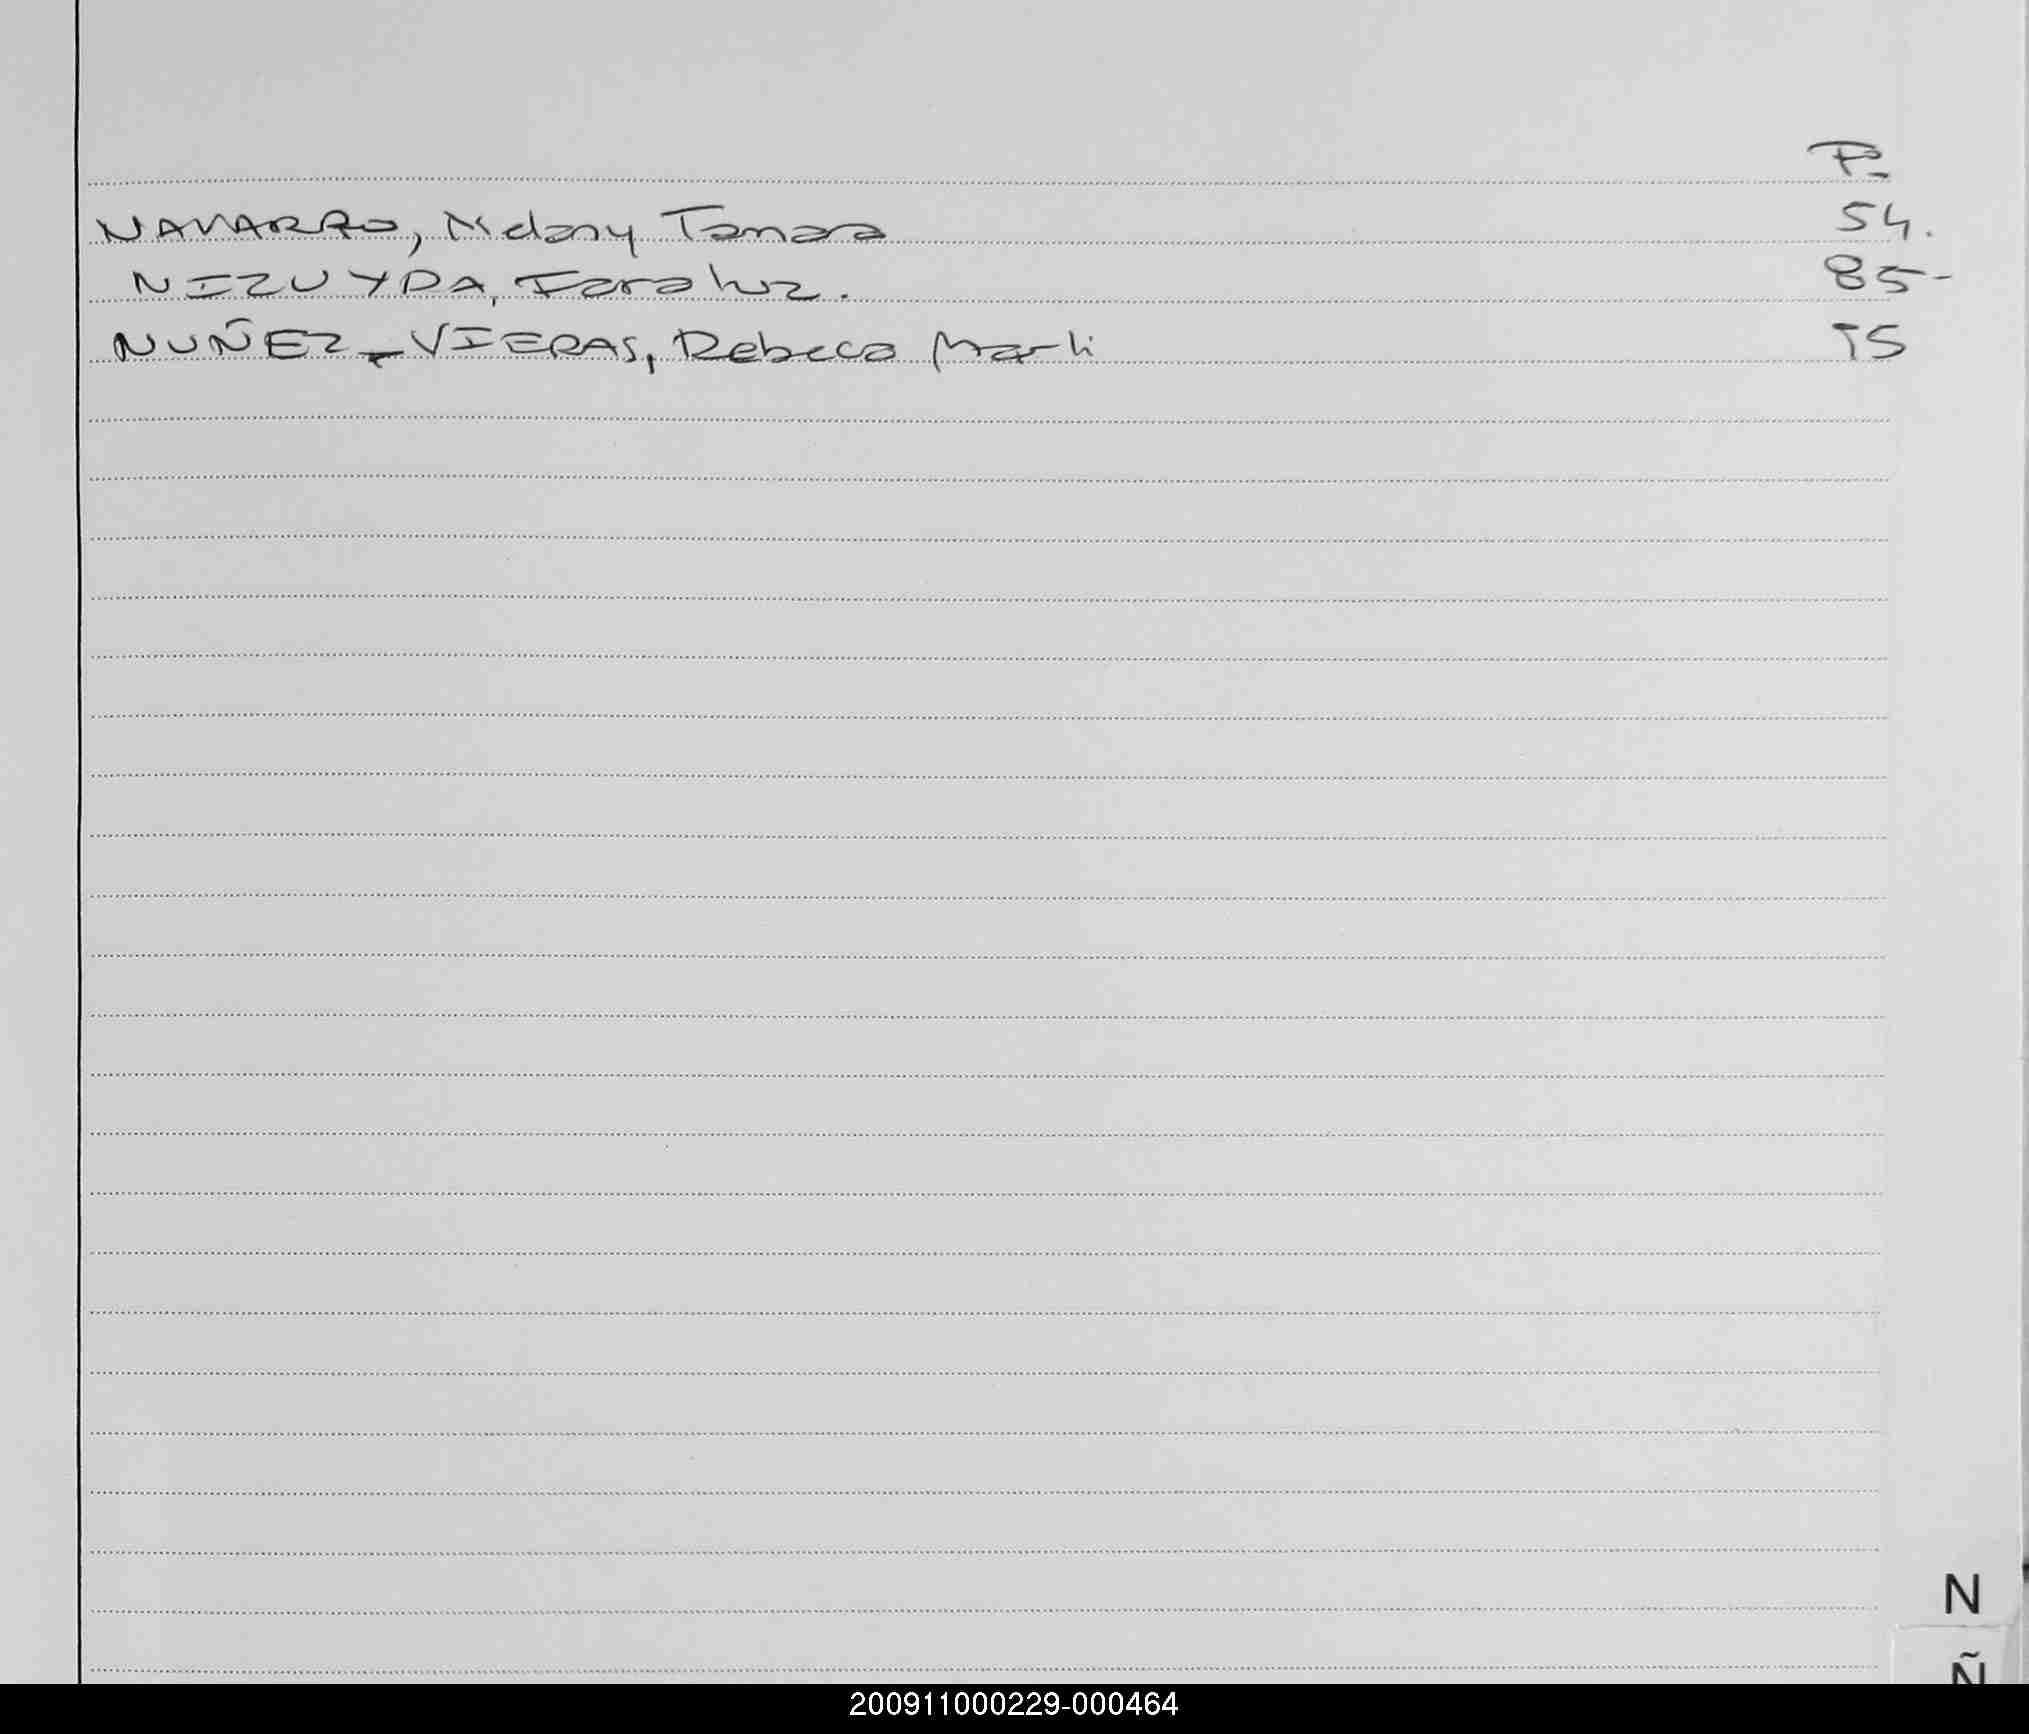 P-
NAVARRO, Melany Tamara 54.
NIZUYDA, Iara luz. 85-
NUÑEZ-VIERAS, Rebeca Marli 95
N
Ñ
200911000229-000464